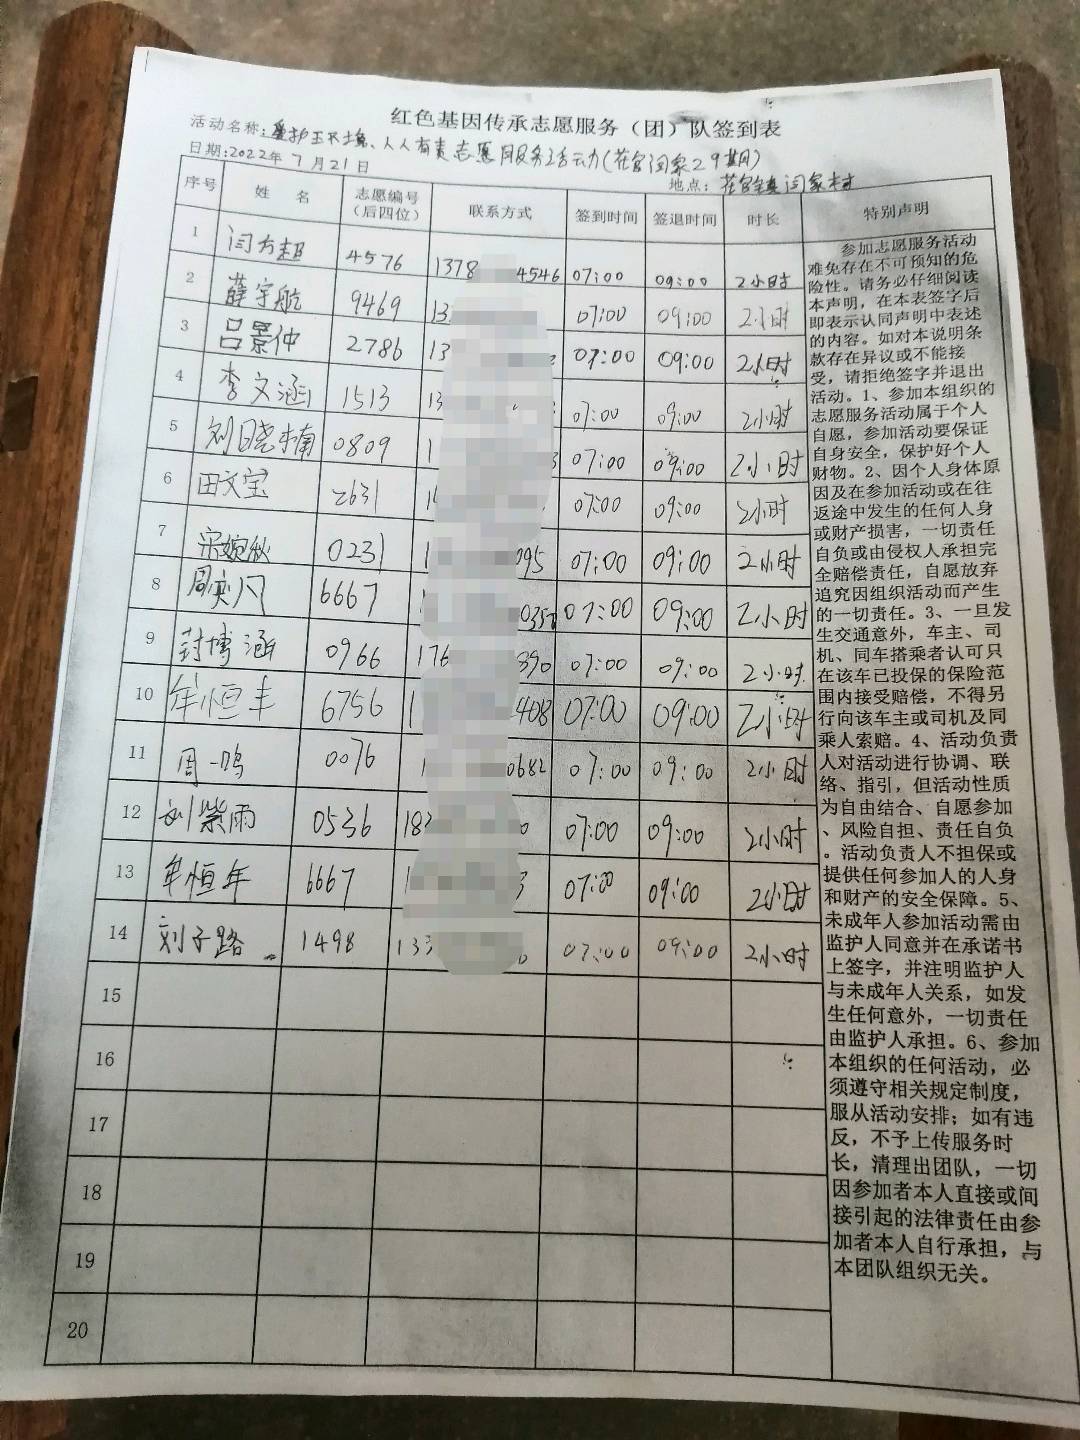 红色基因传承志愿服务（团）队签到表
活动名称：爱护环境、人人有责志愿服务活动(花官闫家29期)
日期:2022年7月21日
地点：花官镇闫家村
序号 姓 名 志愿编号（后四位） 联系方式 签到时间 签退时间 时长 特别声明
1 闫方超 4576 1378 4546 07:00 09:00 2小时
2 薛宇航 9469 13 07:00 09:00 2小时
3 吕景仲 2786 13 07:00 09:00 2小时
4 李文涵 1513 07:00 09:00 2小时
5 刘晓楠 0809 1 3 07:00 09:00 2小时
6 田文宝 2631 07:00 09:00 2小时
7 宋婉秋 0231 1 095 07:00 09:00 2小时
8 周奕 6667 035 07:00 09:00 2小时
9 封博涵 0966 176 390 07:00 09:00 2小时
10 牟恒丰 6756 1 408 07:00 09:00 2小时
11 周一鸣 0076 0682 07:00 09:00 2小时
12 刘紫雨 0536 18 0 07:00 09:00 2小时
13 牟恒年 6667 1 3 07:00 09:00 2小时
14 刘子路 1498 13 07:00 09:00 2小时
15
16
17
18
19
20
参加志愿服务活动
难免存在不可预知的危
险性。请务必仔细阅读
本声明，在本表签字后
即表示认同声明中表述
的内容。如对本说明条
款存在异议或不能接
受，请拒绝签字并退出
活动。1、参加本组织的
志愿服务活动属于个人
自愿，参加活动要保证
自身安全，保护好个人
财物。2、因个人身体原
因及在参加活动或在往
返途中发生的任何人身
或财产损害，一切责任
自负或由侵权人承担完
全赔偿责任，自愿放弃
追究因组织活动而产生
的一切责任。3、一旦发
生交通意外，车主、司
机、同车搭乘者认可只
在该车已投保的保险范
围内接受赔偿，不得另
行向该车主或司机及同
乘人索赔。4、活动负责
人对活动进行协调、联
络、指引，但活动性质
为自由结合、自愿参加
、风险自担、责任自负
。活动负责人不担保或
提供任何参加人的人身
和财产的安全保障。5、
未成年人参加活动需由
监护人同意并在承诺书
上签字，并注明监护人
与未成年人关系，如发
生任何意外，一切责任
由监护人承担。6、参加
本组织的任何活动，必
须遵守相关规定制度，
服从活动安排；如有违
反，不予上传服务时
长，清理出团队，一切
因参加者本人直接或间
接引起的法律责任由参
加者本人自行承担，与
本团队组织无关。